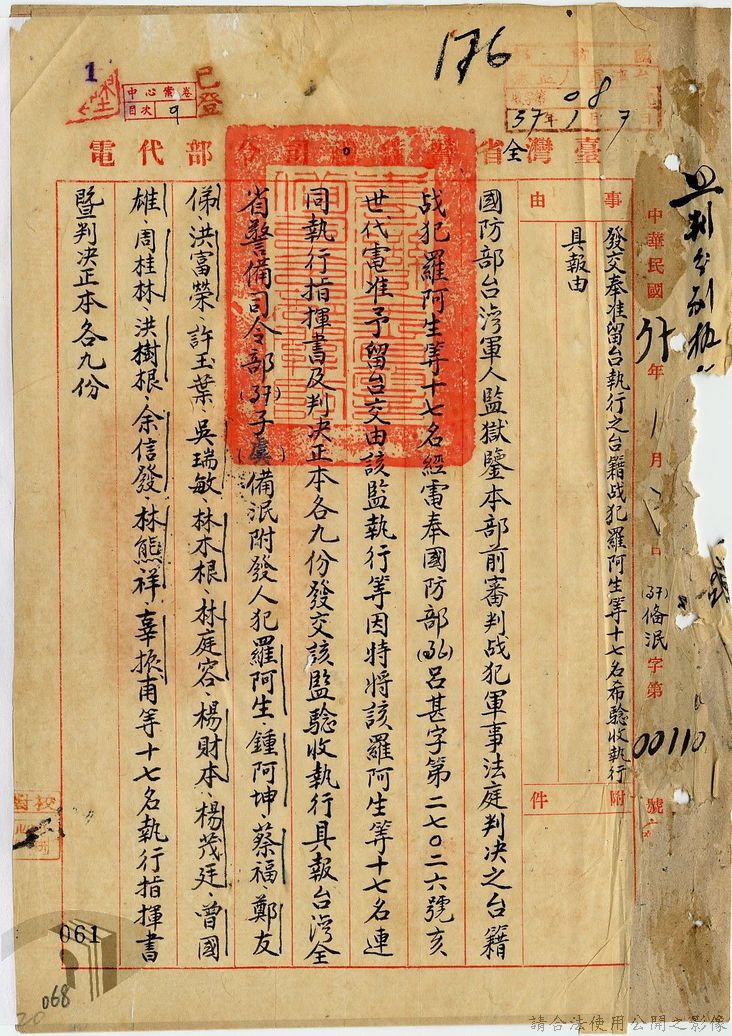 176
1
已登
中心黨卷
目次 9
08
37年1月7日
臺灣全省警備司令部代電
中華民國37年1月 日
(37)俻泯字第00110號
事由
發交奉准留台執行之台籍战犯羅阿生等十七名希驗收執行
具報由
附件
國防部台湾軍人監獄鑒本部前審判战犯軍事法庭判决之台籍
战犯羅阿生等十七名經電奉國防部(36)呂甚字第二七〇二六號亥
世代電准予留台交由該監執行等因特將該羅阿生等十七名連
同執行指揮書及判决正本各九份發交該監驗收執行具報台湾全
省警備司令部(37)子虞()備泯附發人犯羅阿生、鍾阿坤、蔡福、鄭友
俤、洪富榮、許玉葉、吳瑞敏、林木根、林庭容、楊財本、楊茂廷、曾國
雄、周桂林、洪樹根、余信發、林熊祥、辜振甫等十七名執行指揮書
暨判决正本各九份
校對
061
068
20
請合法使用公開之影像